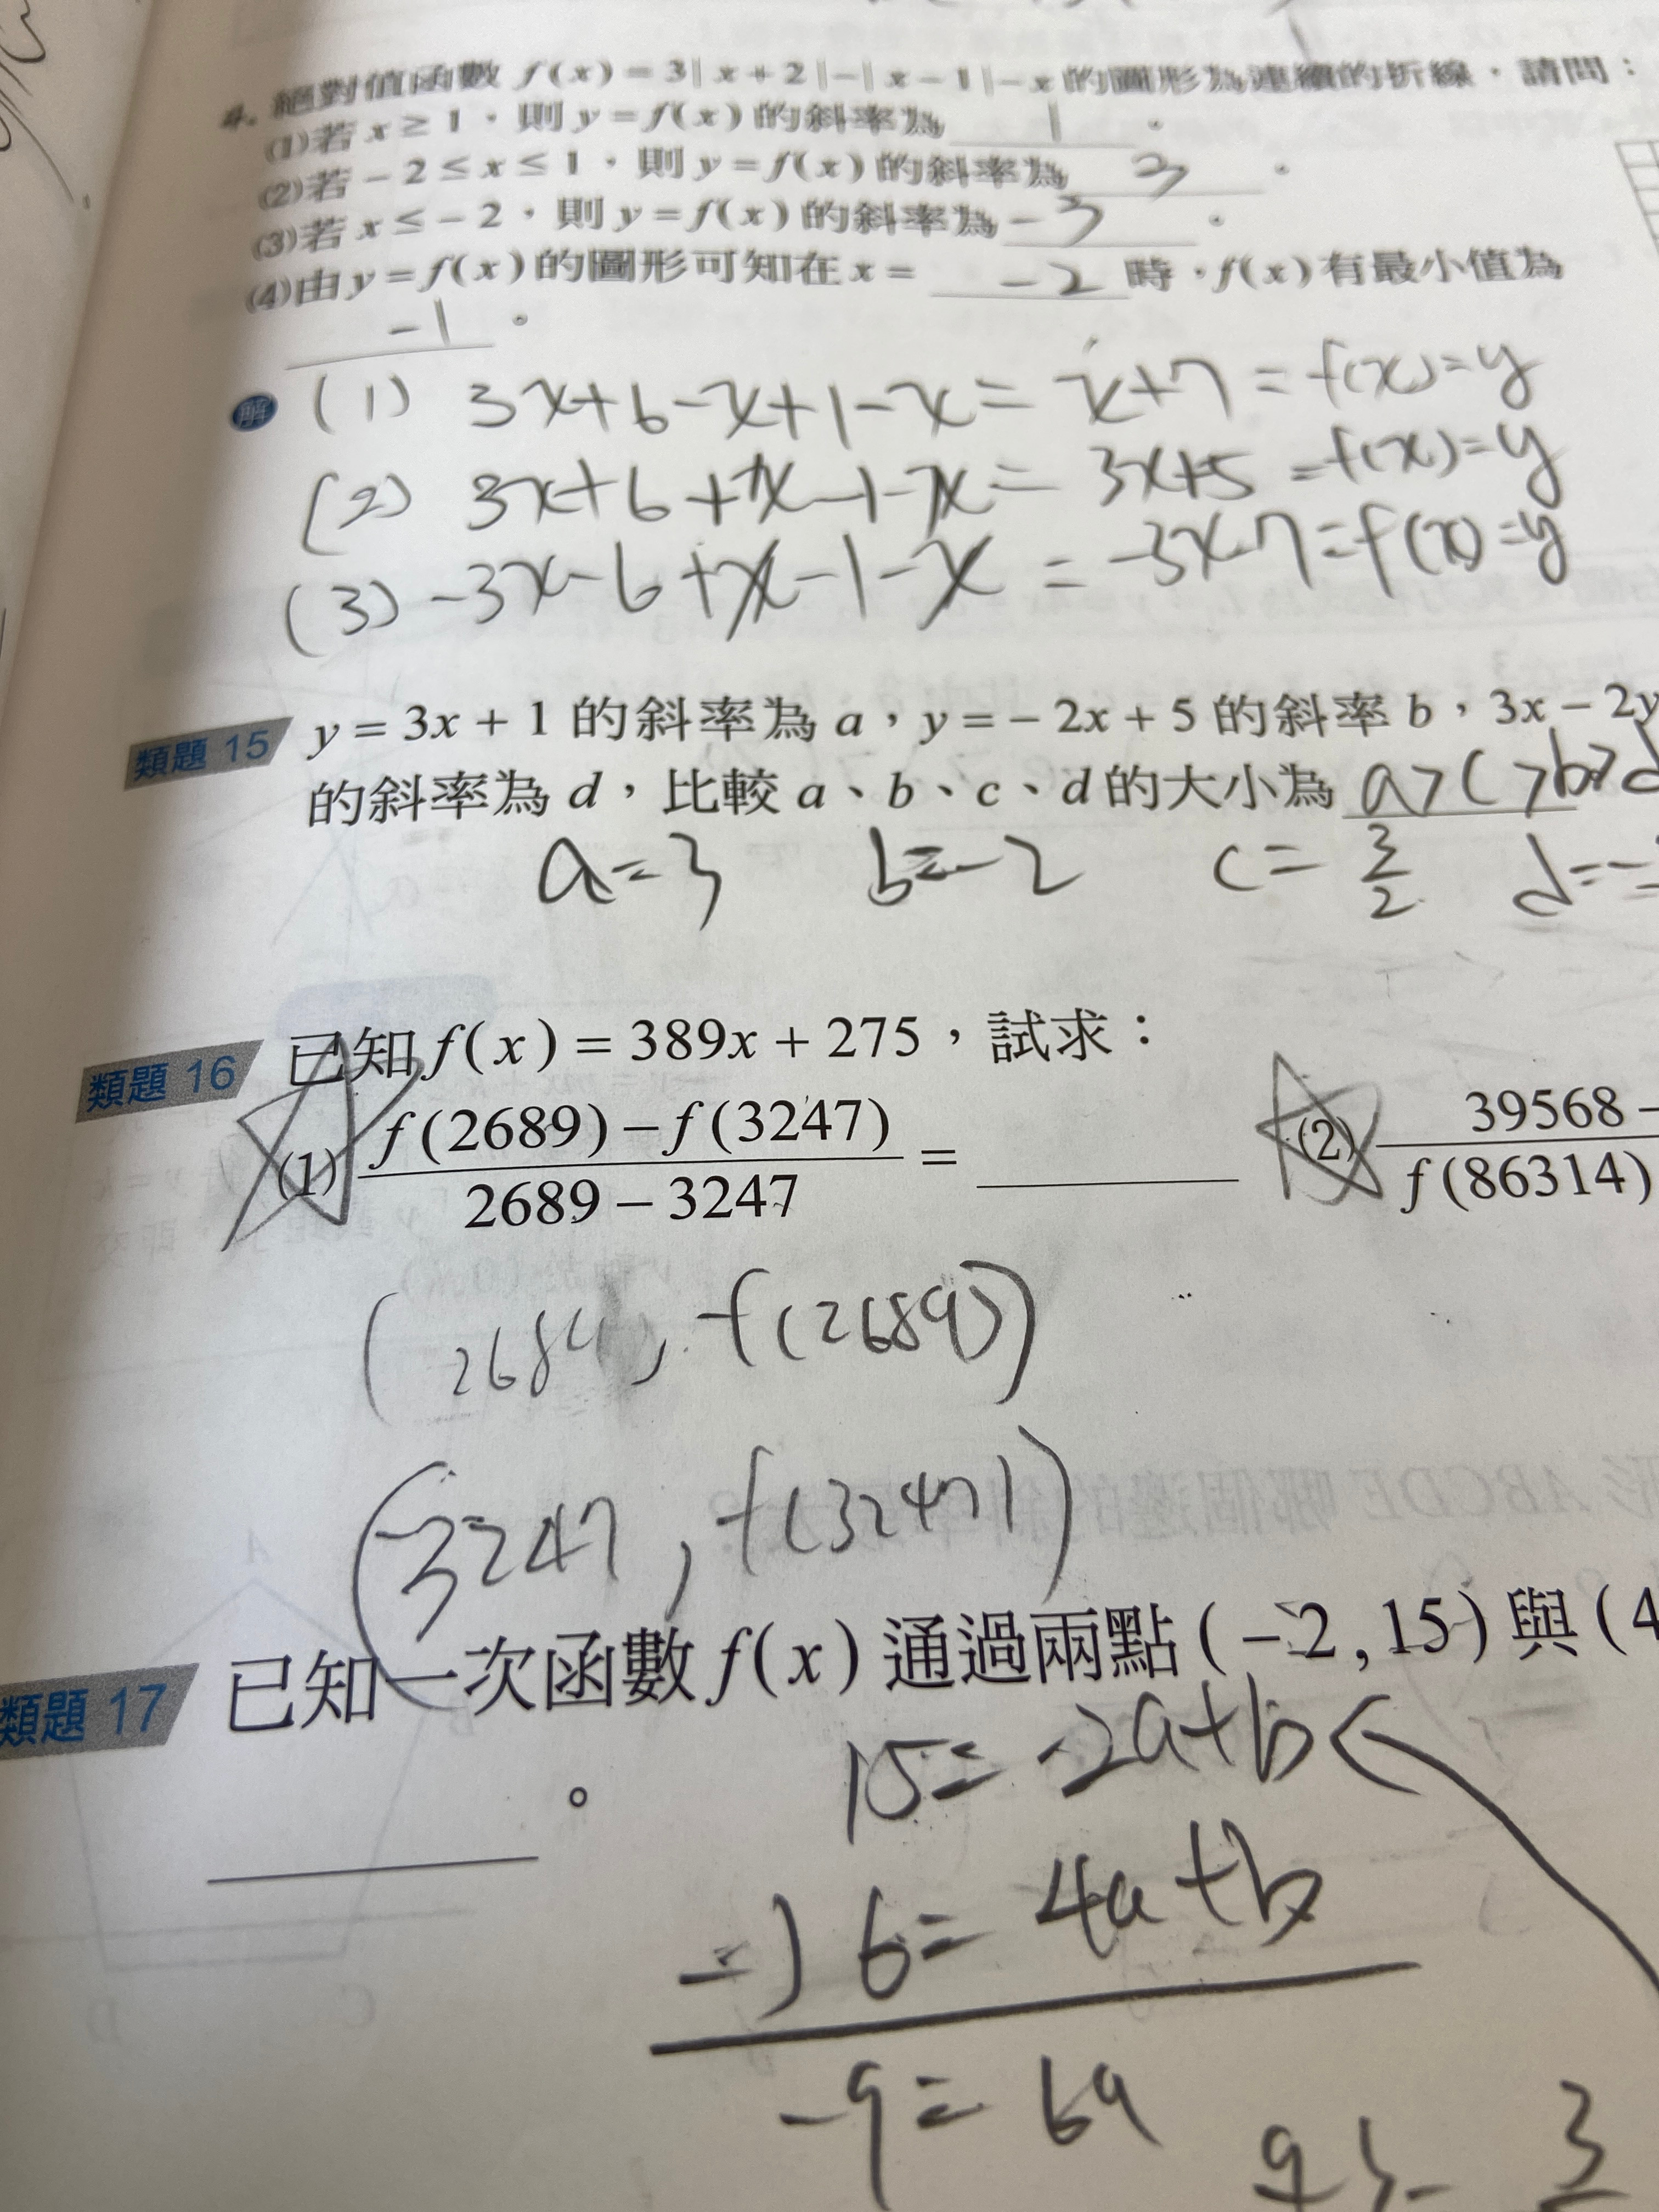 4. 絕對值函數 f(x) = 3|x+2|−|x−1|−x 的圖形為連續的折線，請問：
(1)若 x ≥ 1，則 y = f(x) 的斜率為 1 。
(2)若 −2 ≤ x ≤ 1，則 y = f(x) 的斜率為 3 。
(3)若 x ≤ −2，則 y = f(x) 的斜率為 −3 。
(4)由 y = f(x) 的圖形可知在 x = −2 時，f(x) 有最小值為
−1 。
解 (1) 3x+6−x+1−x = x+7 = f(x)=y
(2) 3x+6+x−1−x = 3x+5 = f(x)=y
(3) −3x−6+x−1−x = −3x−7 = f(x)=y
類題 15 y = 3x + 1 的斜率為 a，y = − 2x + 5 的斜率 b，3x − 2y
的斜率為 d，比較 a、b、c、d 的大小為 a>c>b>d
a=3 b=−2 c= 3/2 d=−
類題 16 已知 f(x) = 389x + 275，試求：
(1) f(2689) − f(3247) / 2689 − 3247 = (2) 39568 − / f(86314)
(2689, f(2689))
(3247, f(3247))
類題 17 已知一次函數 f(x) 通過兩點 (−2, 15) 與 (4
。
15 = −2a+b
−) 6 = 4a+b
−9 = 6a